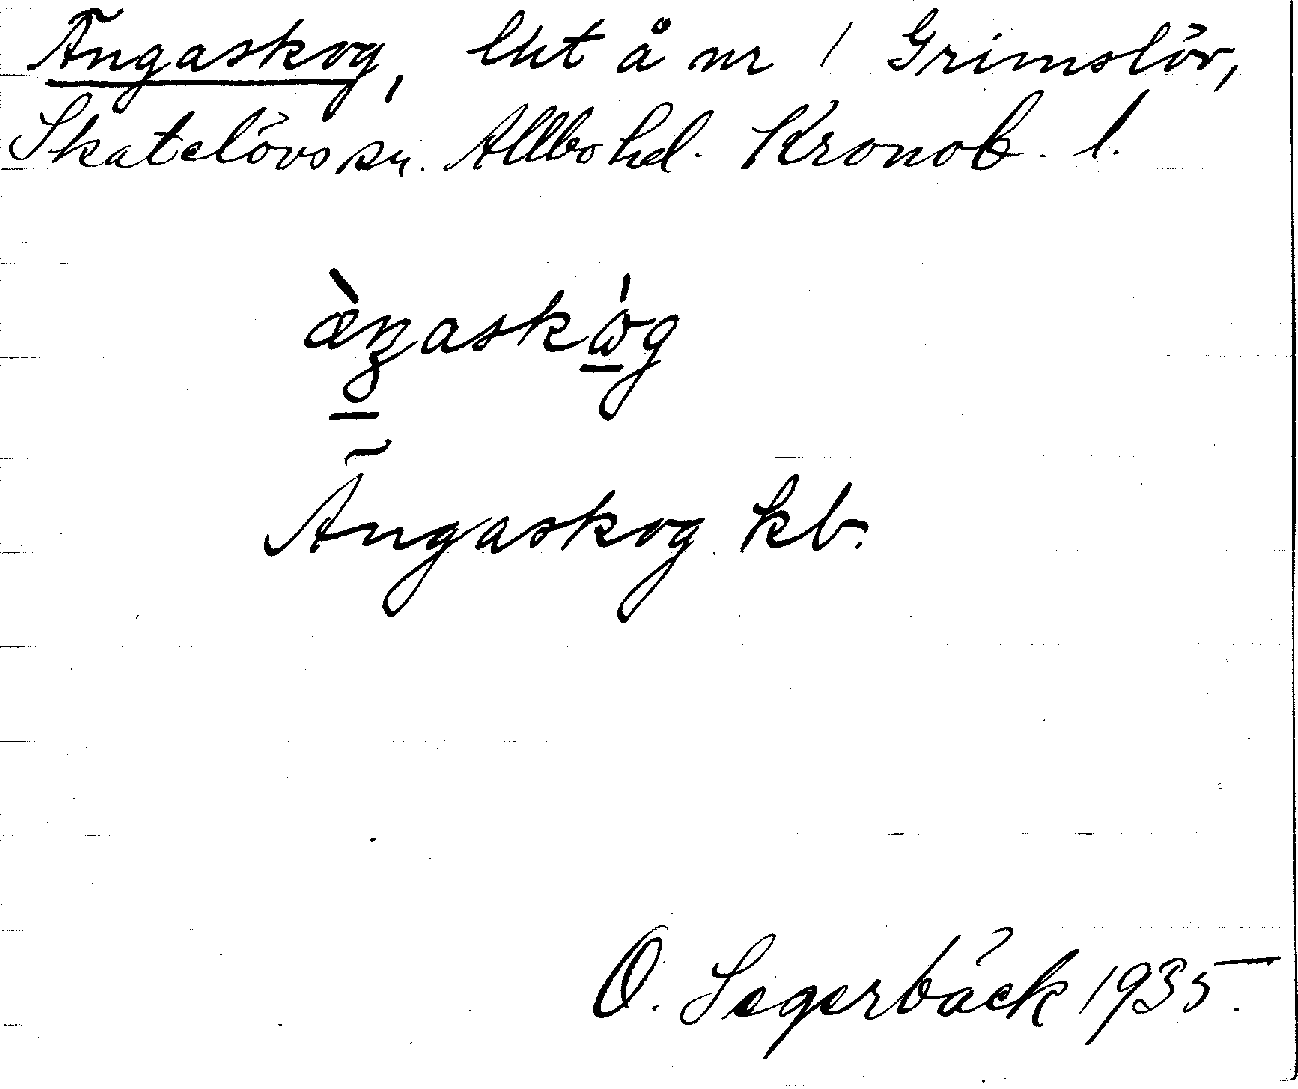 Ängaskog, lht å nr 1 Grimslöv,
Skatelövs sn. Allbo hd. Kronob. l.
æ̀ŋaskɷ́g
Ängaskog kb.
O. Segerbäck 1935.